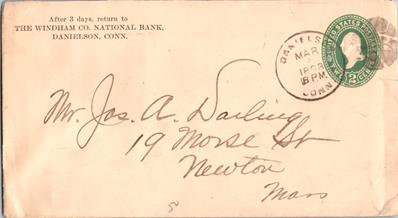 After 3 days, return to
THE WINDHAM CO. NATIONAL BANK,
DANIELSON, CONN.
DANIELS
MAR
5 PM
CONN
UNITED STATES
2
Mr. Jas. A. Darling
19 Morse St
Newton
Mass